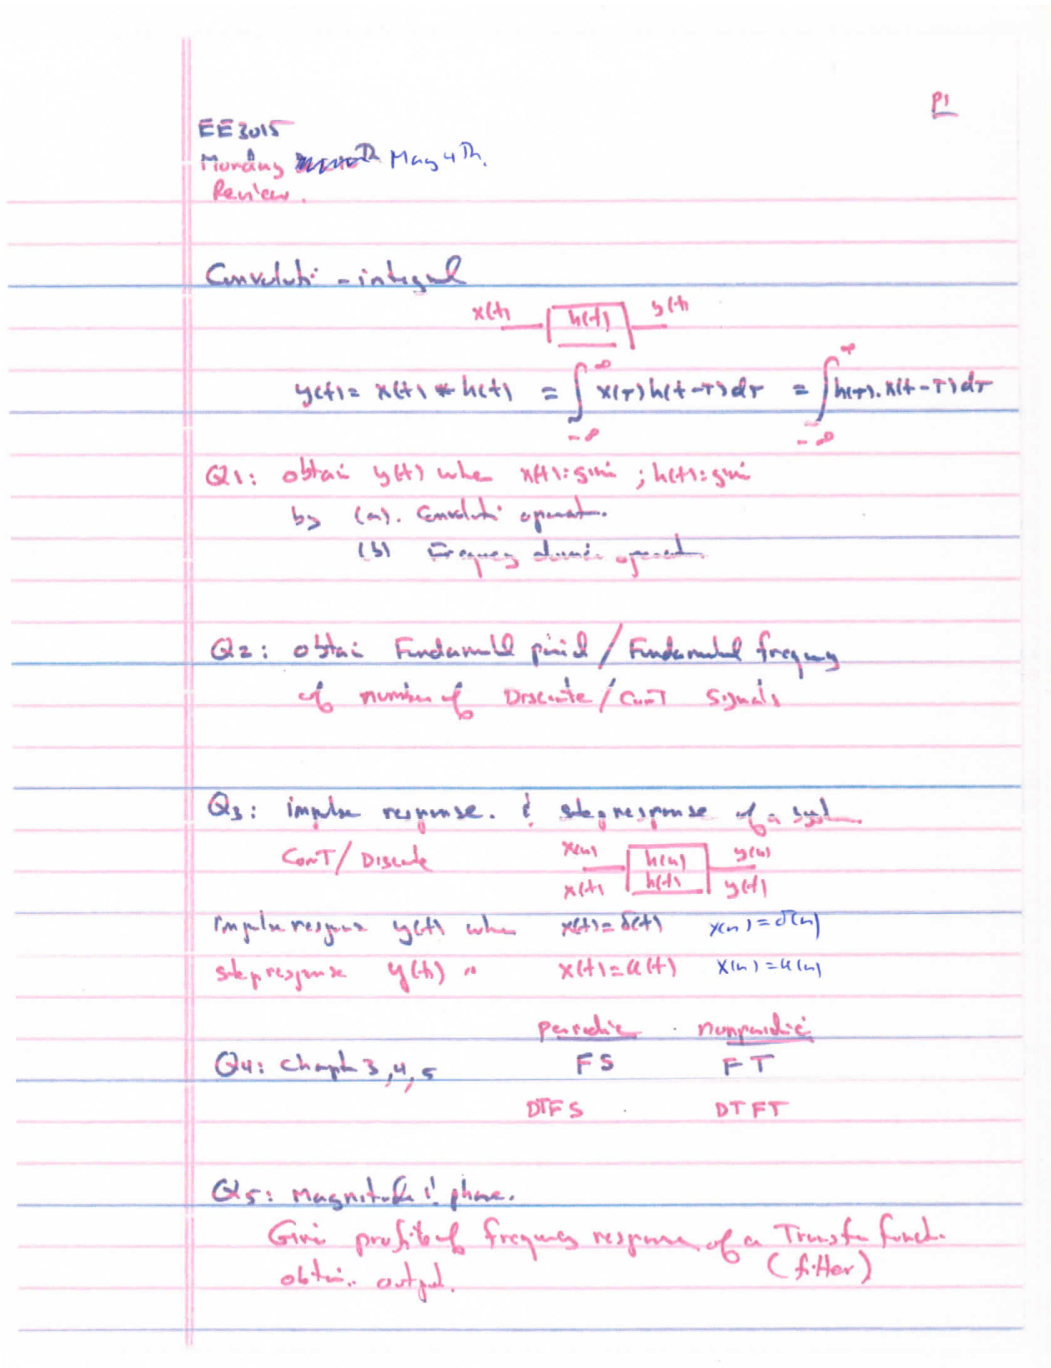 P1
EE3015
Monday May 4th.
Review.
Convoluti - integral
x(t) h(t) y(t)
y(t) = x(t) * h(t) = ∫_{-∞}^{∞} x(τ) h(t-τ) dτ = ∫_{-∞}^{∞} h(τ). x(t-τ) dτ
Q1: obtai y(t) when x(t): given ; h(t): given
by (a). Convoluti operat.
(b) Frequency domain operat.
Q2: obtai Fundamental period / Fundamental frequency
of number of Discrete / ConT Signals
Q3: impulse response. & step response of a system
ConT / Discrete x(n) h(n) y(n)
x(t) h(t) y(t)
impulse response y(t) when x(t) = δ(t) x(n) = δ(n)
step response y(t) " x(t) = u(t) x(n) = u(n)
periodic nonperiodic
Q4: Chapt 3, 4, 5 FS FT
DTFS DTFT
Q5: Magnitude & phase.
Given profile of frequency response of a Transfer funct.
obtain output. (filter)